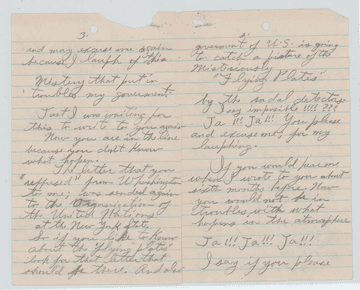 3.
and may excuse me again
because I laugh of this
Mistery that put in
troubles my Goverment.
Just I am waiting for
this to write to you again
Now you are in the line
because you don't know
what happen.
letter that you
"suppress" from
to me; I am send again
to the organization of
the United Nations
at the New York State
So if you like to know
about the Flying Plates
look for that letter that
should be there. And also
2
goverment of U.S. is going
to catch a picture of the
Misteriously
"Flying Plates"
by the radal detectors
I say imposible !!!! ???
Ja!!! Ja!!! You please
and excuse me for my
laughing.
If you would hear me
when I wrote to you about
sixth months before. Now
you would not be in
troubles with what
happens in the atmosphere
Ja!!! Ja!!! Ja!!!
I say if you please